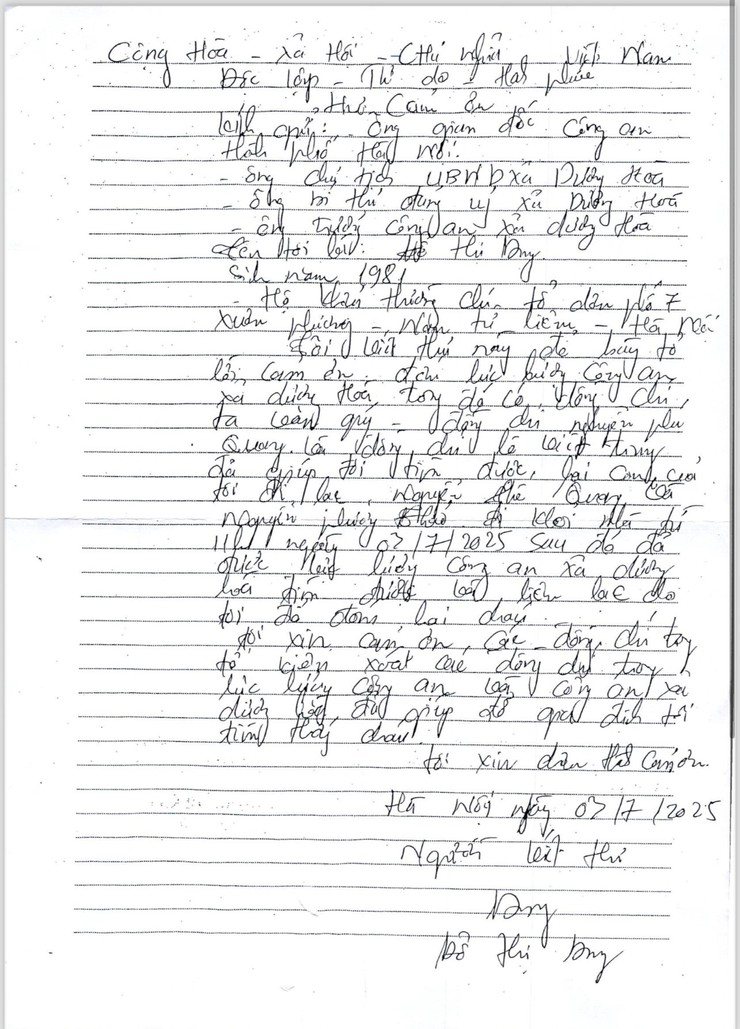 Cộng Hòa - Xã Hội - Chủ nghĩa Việt Nam
Độc lập - Tự do - Hạnh phúc
Thư Cảm ơn
Kính gửi: Ông giám đốc Công an
thành phố Hà Nội.
- ông chủ tịch UBND xã Dương Hòa
- ông bí thư đảng uỷ xã Dương Hoà
- ông trưởng Công an xã dương Hoà
tên tôi là: Đỗ Thị
Sinh năm 1981
- Hộ khẩu thường chú tổ dân phố 7
Xuân phương - Nam từ liêm - Hà Nội
Tôi viết thư này để bày tỏ
lời cảm ơn đến lực lượng Công an
xã dương Hoà, trong đó có đồng chí,
- đồng chí nguyễn
Quang và đồng chí lê việt
đã giúp tôi tìm được lại con của
tôi đi lạc nguyễn thế Quang và
nguyễn phương đi khỏi nhà từ
11h ngày 02/7/2025 sau đó đã
được lực lượng công an xã dương
hoà tìm được và liên lạc cho
tôi đã đón lại cháu.
tôi xin cảm ơn các đồng chí trong
tổ kiểm xoát các đồng chí trong
lực lượng công an công an xã
dương hoà đã giúp đỡ gia đình tôi
tìm thấy cháu.
tôi xin chân thành cảm ơn.
Hà Nội ngày 02/7/2025
Người viết thư
Đỗ Thị